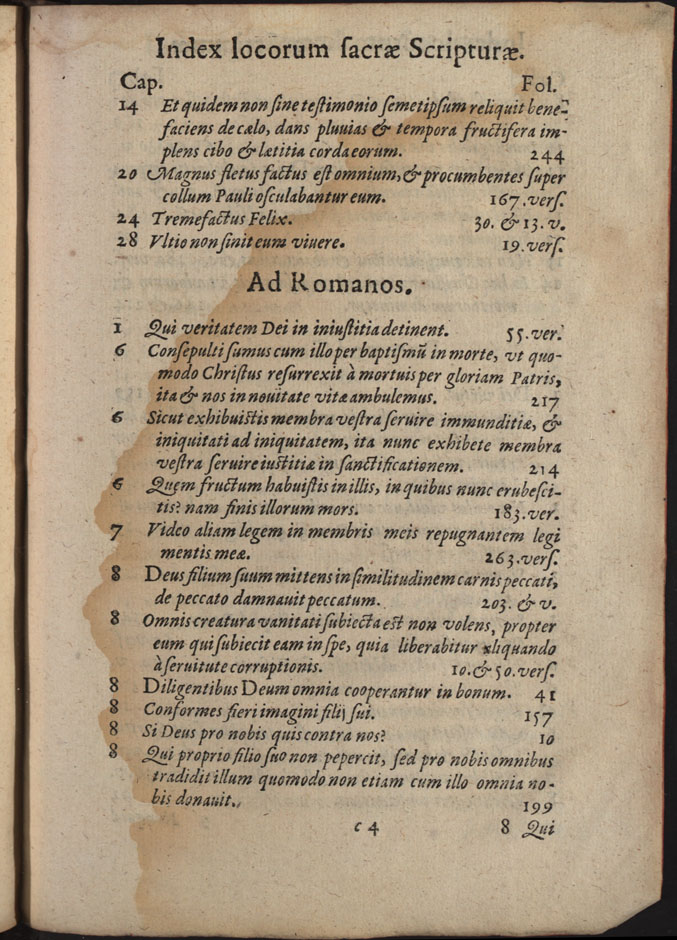 Index locorum ſacræ Scripturæ.
Cap. Fol.
14 Et quidem non ſine teſtimonio ſemetipſum reliquit bene-
faciens de cælo, dans pluuias & tempora fructifera im-
plens cibo & lætitia corda eorum. 244
20 Magnus fletus factus eſt omnium, & procumbentes ſuper
collum Pauli oſculabantur eum. 167.verſ.
24 Tremefactus Felix. 30. & 13. v.
28 Vltio non ſinit eum viuere. 19.verſ.
Ad Romanos.
1 Qui veritatem Dei in iniuſtitia detinent. 55.ver.
6 Conſepulti ſumus cum illo per baptiſmũ in morte, vt quo-
modo Chriſtus reſurrexit à mortuis per gloriam Patris,
ita & nos in nouitate vitæ ambulemus. 217
6 Sicut exhibuiſtis membra veſtra ſeruire immunditiæ, &
iniquitati ad iniquitatem, ita nunc exhibete membra
veſtra ſeruire iuſtitiæ in ſanctificationem. 214
6 Quem fructum habuiſtis in illis, in quibus nunc erubeſci-
tis? nam finis illorum mors. 183.ver.
7 Video aliam legem in membris meis repugnantem legi
mentis meæ. 263.verſ.
8 Deus filium ſuum mittens in ſimilitudinem carnis peccati,
de peccato damnauit peccatum. 203. & v.
8 Omnis creatura vanitati ſubiecta eſt non volens, propter
eum qui ſubiecit eam in ſpe, quia liberabitur aliquando
à ſeruitute corruptionis. 10.& 50.verſ.
8 Diligentibus Deum omnia cooperantur in bonum. 41
8 Conformes fieri imagini filij ſui. 157
8 Si Deus pro nobis quis contra nos? 10
8 Qui proprio filio ſuo non pepercit, ſed pro nobis omnibus
tradidit illum quomodo non etiam cum illo omnia no-
bis donauit. 199
c 4 8 Qui